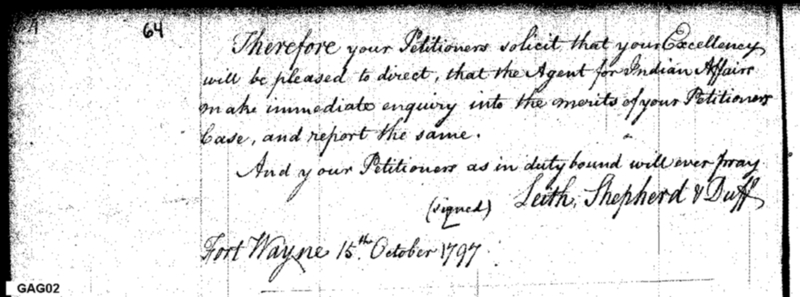 64
Therefore your Petitioners solicit that your Excellency
will be pleased to direct, that the Agent for Indian Affairs
make immediate enquiry into the merits of your Petitioners
Case, and report the same.
And your Petitioners as in duty bound will ever pray
(signed) Leith, Shepherd & Duff
Fort Wayne 15th October 1797
GAG02